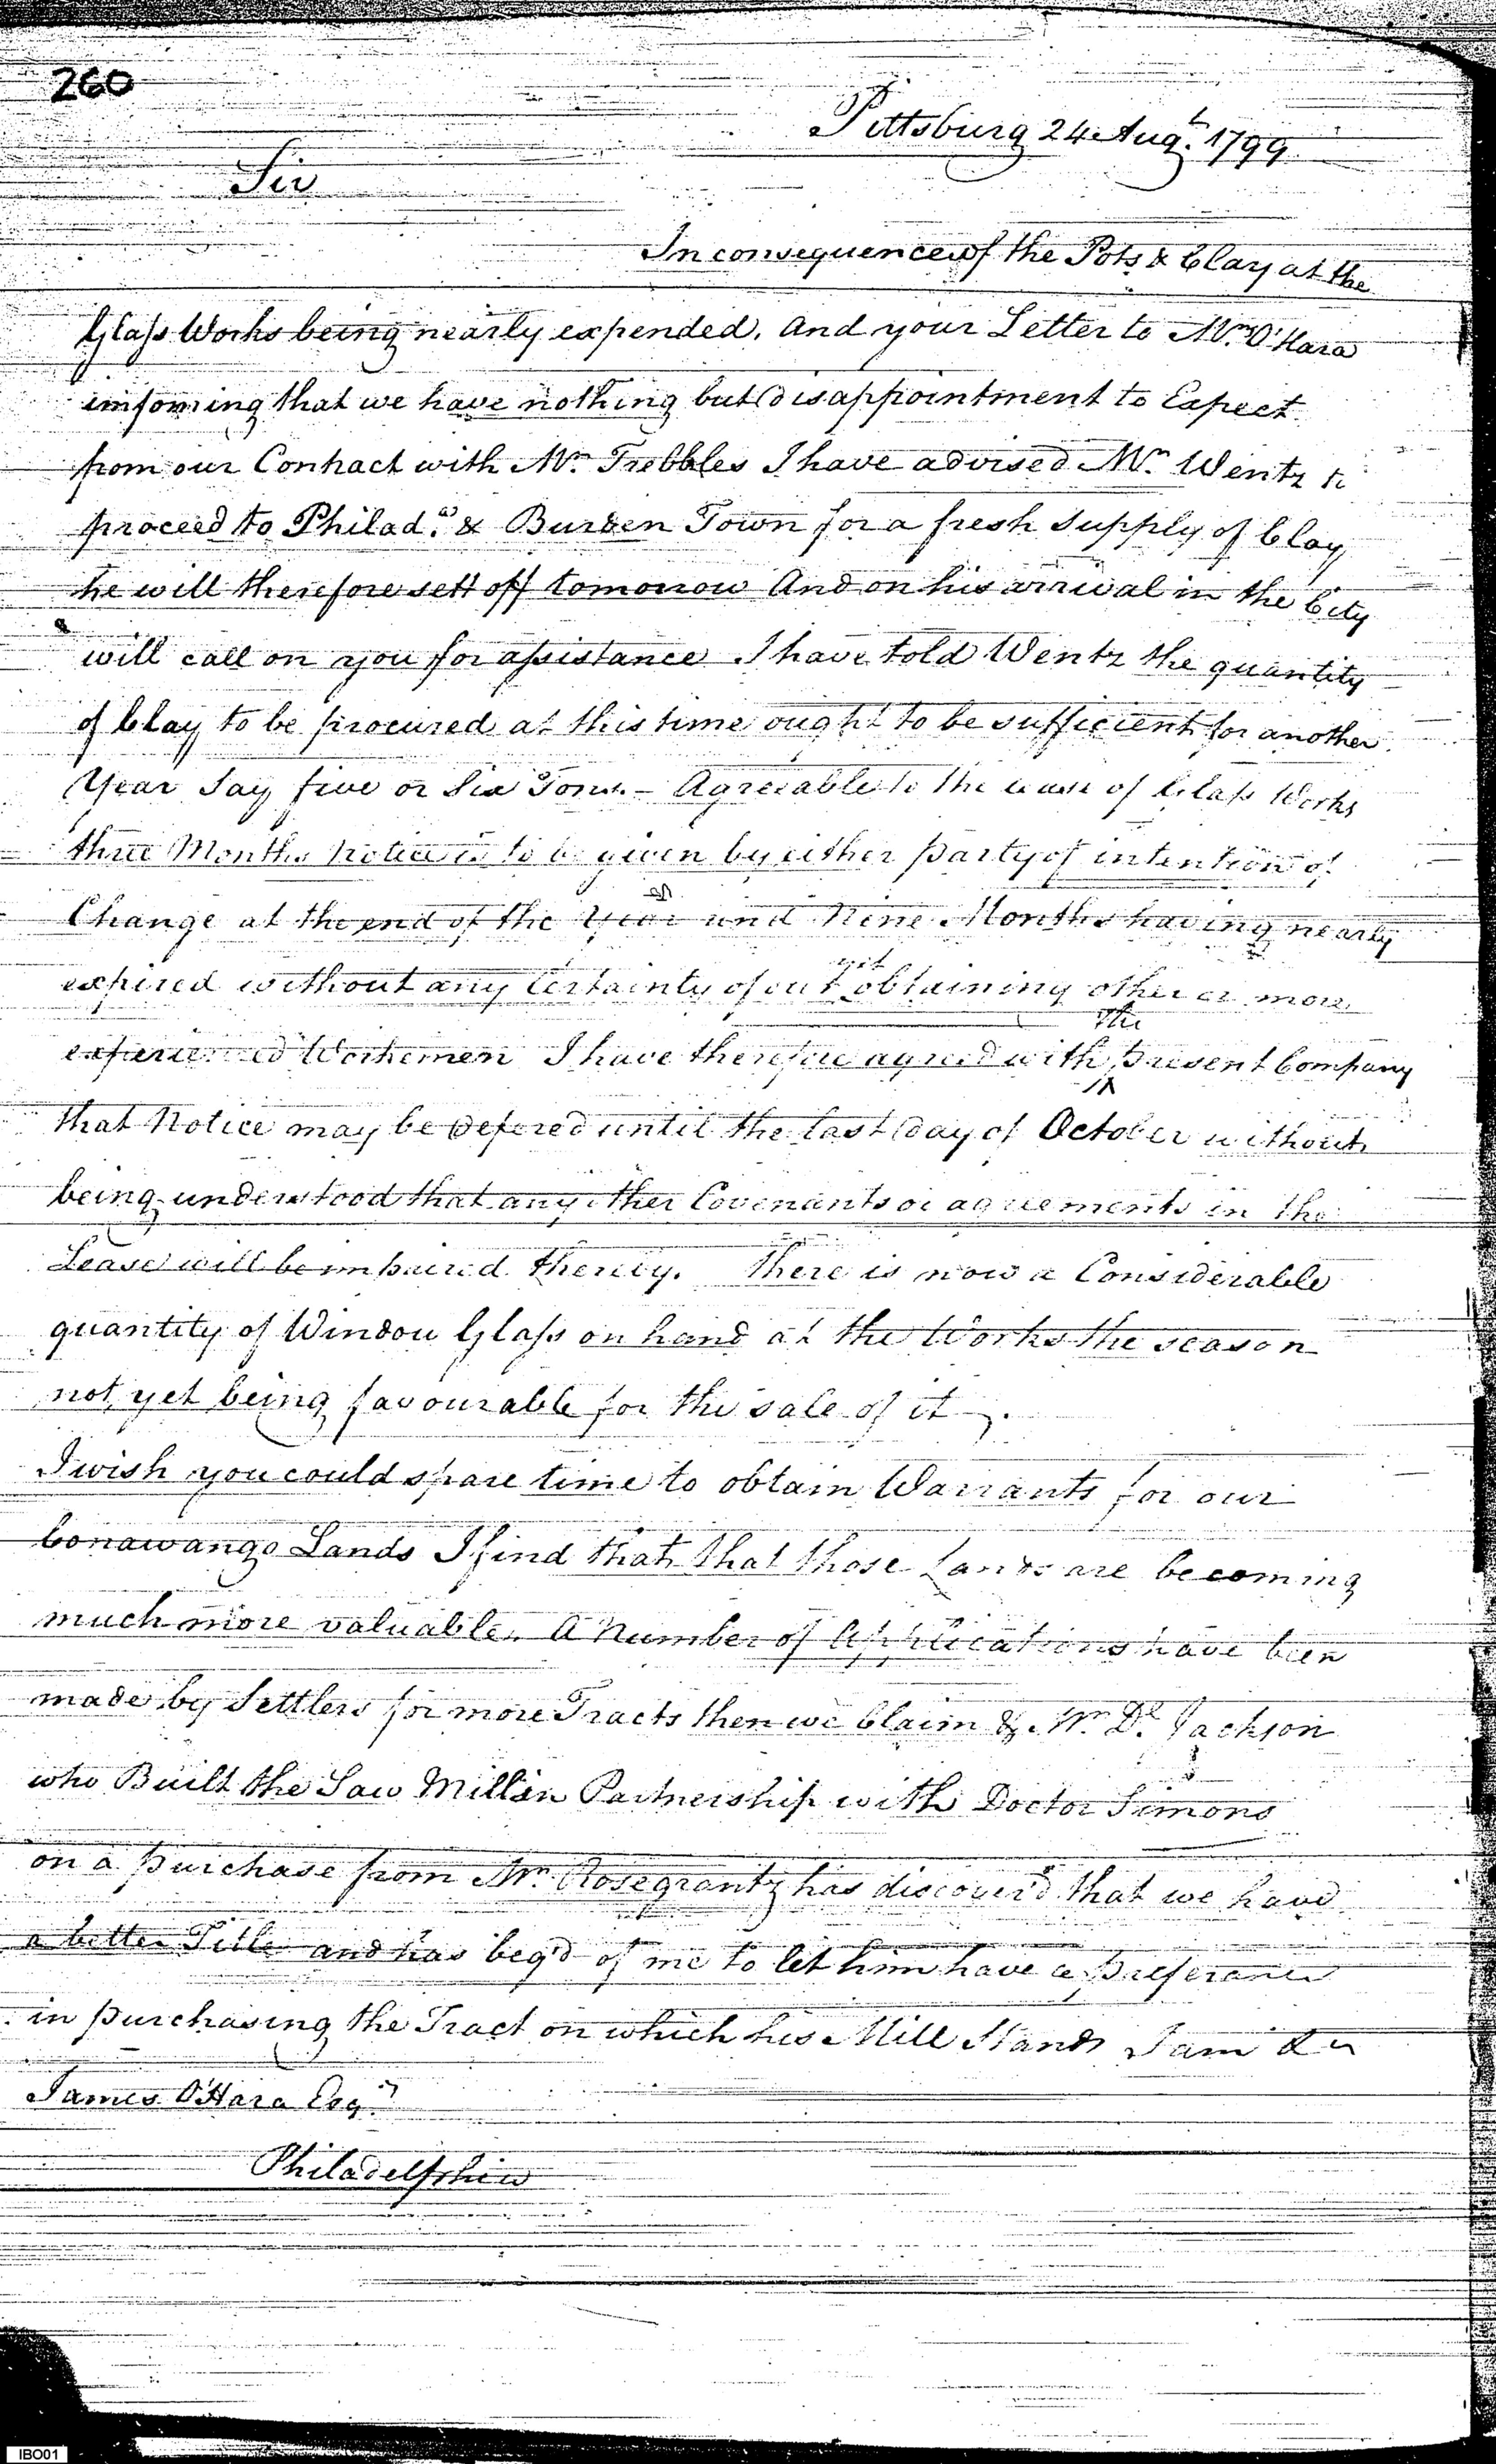 260
Pittsburg 24 Augt. 1799
Sir
In consequence of the Pots & Clay at the
Glass Works being nearly expended. And your Letter to Mrs. O'Hara
informing that we have nothing but disappointment to Expect
from our Contract with Mr. Trebbles I have advised Mr. Wentz to
proceed to Philada. & Burden Town for a fresh Supply of Clay
he will therefore sett off tomorrow And on his arrival in the City
will call on you for assistance I have told Wentz the quantity
of Clay to be procured at this time ought to be sufficient for another
Year Say five or Six Tons. - Agreeable to the Lease of Glass Works
three Months Notice is to be given by either party of intention of
Change at the end of the Year and Nine Months having nearly
expired without any Certainty of our obtaining other or more
experienced Workemen I have therefore agreed with the present Company
that Notice may be defered until the last day of October without
being understood that any other Covenants or agreements in the
Lease will be impaired thereby. There is now a Considerable
quantity of Window Glass on hand at the Works the season
not yet being favourable for the sale of it.
I wish you could spare time to obtain Warrants for our
Conawango Lands I find that that those Lands are becoming
much more valuable. A Number of Applications have been
made by Settlers for more Tracts then we Claim & Mr. Dl. Jackson
who Built the Saw Mill in Partnership with Doctor Simons
on a purchase from Mr. Rosegrantz has discover'd that we have
a better Title and has beg'd of me to let him have a preferance
in purchasing the Tract on which his Mill Stands I am &c
James O'Hara Esqr.
Philadelphia
IBO01